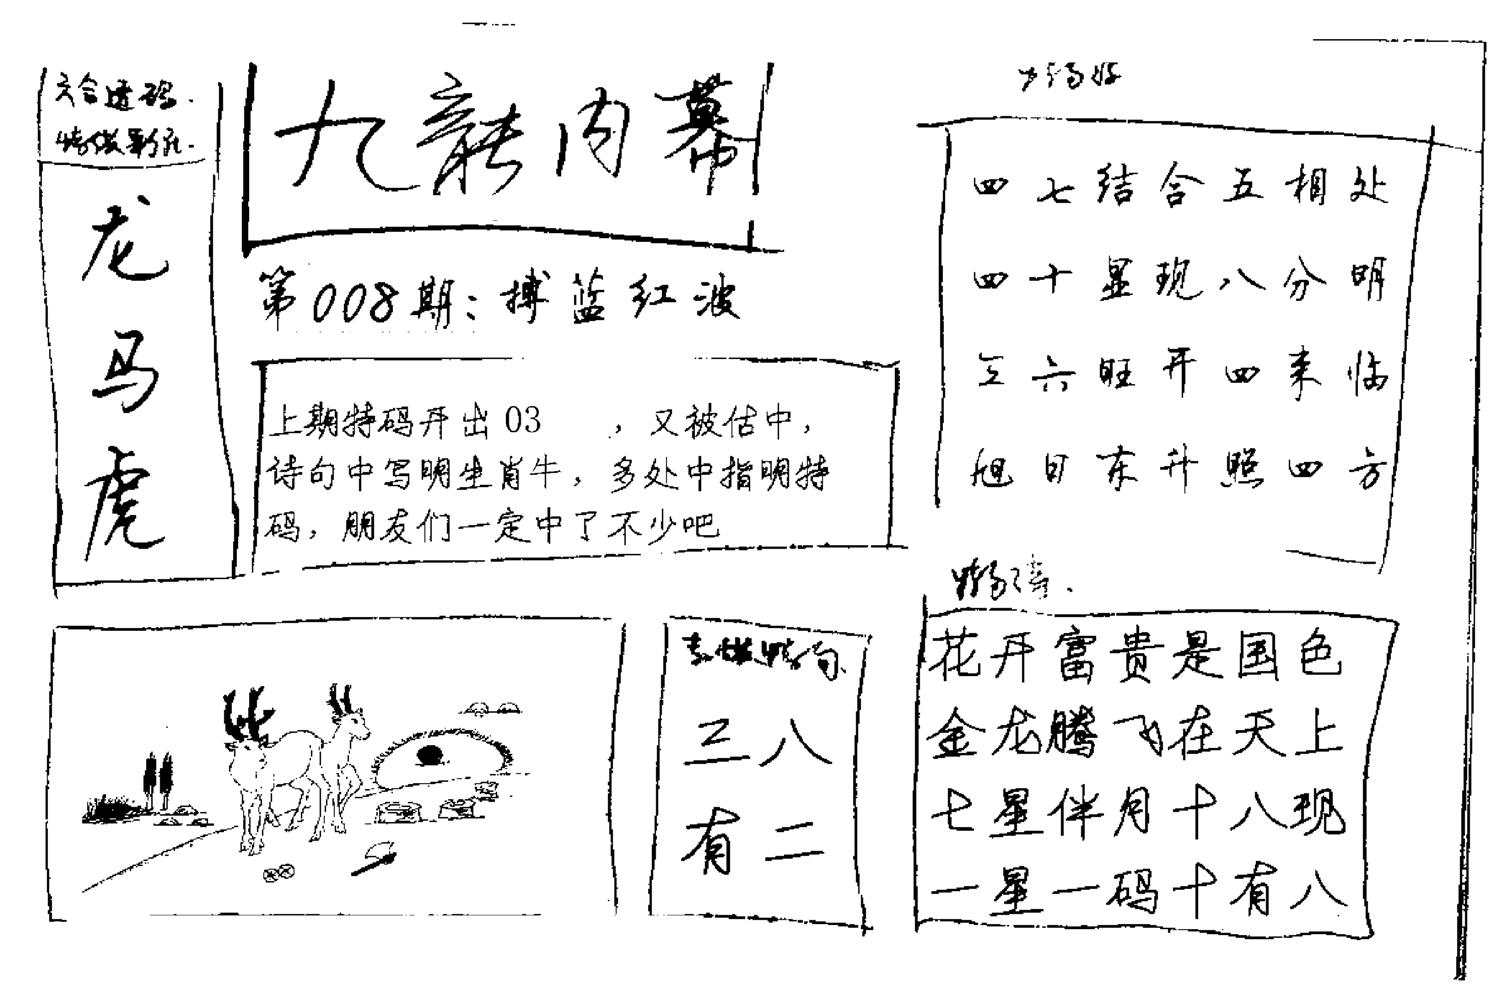 六合透码.
龙
马
虎
九龍内幕
第008期：搏蓝红波
上期特码开出 03 ，又被估中，
诗句中写明生肖牛，多处中指明特
码，朋友们一定中了不少吧
四七结合五相处
四十显现八分明
三六旺开四来临
旭日东升照四方
三八
有二
花开富贵是国色
金龙腾飞在天上
七星伴月十八现
一星一码十有八